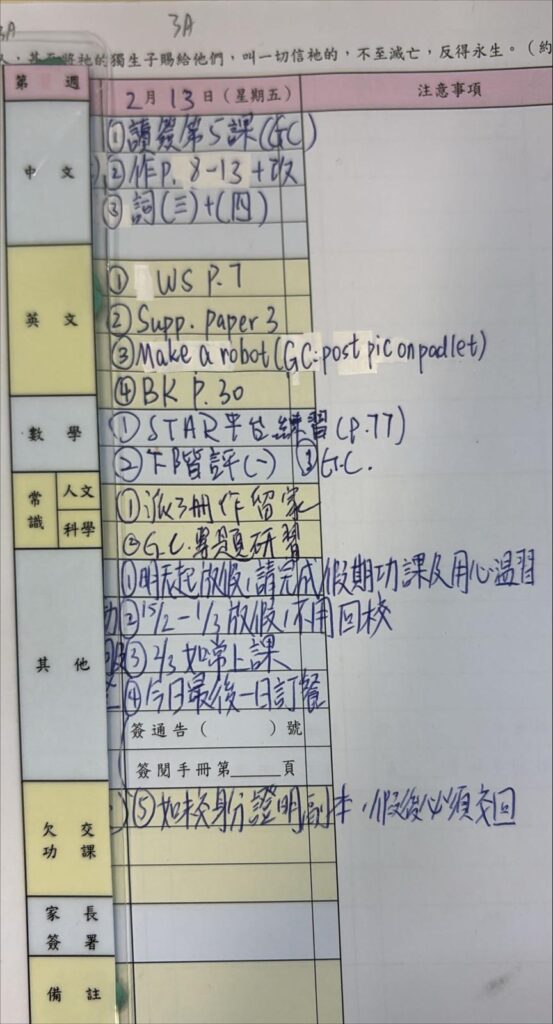 3A
3A
人,甚至將祂的獨生子賜給他們,叫一切信祂的,不至滅亡,反得永生。(約
第 週
2月13日(星期五)
注意事項
中 文
①讀簽第5課(GC)
②作P. 8-13+改
③詞(三)+(四)
英 文
① WS P.7
②Supp. paper 3
③Make a robot (GC: post pic on padlet)
④BK P.30
數 學
①STAR平台練習(p.77)
②下B階評(一) ③G.C.
常識
人文
①派3冊作留家
科學
②G.C.專題研習
其 他
①明天起放假,請完成假期功課及用心溫習
②15/2-1/3放假,不用回校
③2/3如常上課
④今日最後一日訂餐
簽通告( )號
簽閱手冊第 頁
欠交功課
⑤如校身份證明副本,假後必須交回
家長簽署
備 註